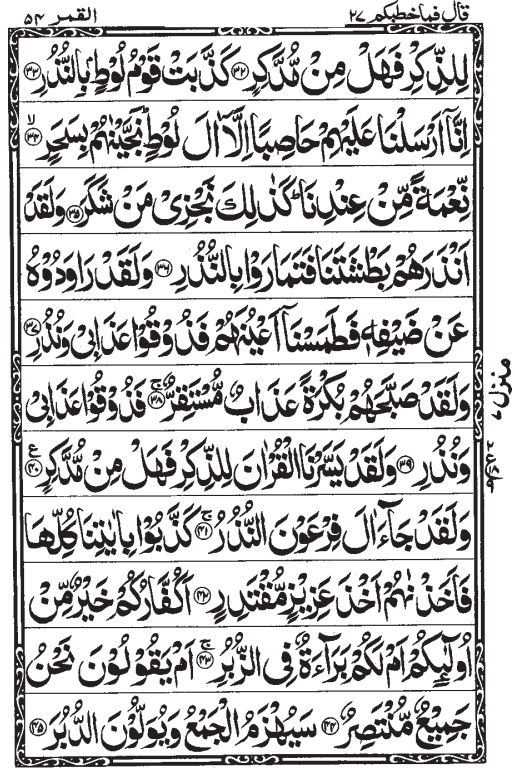 قال فما خطبكم ٢٧
القمر ٥٤
لِلذِّكْرِ فَهَلْ مِنْ مُّدَّكِرٍ ﴿٣٢﴾ كَذَّبَتْ قَوْمُ لُوْطٍۭ بِالنُّذُرِ ﴿٣٣﴾
اِنَّاۤ اَرْسَلْنَا عَلَيْهِمْ حَاصِبًا اِلَّاۤ اٰلَ لُوْطٍ ؕ نَجَّيْنٰهُمْ بِسَحَرٍ ﴿٣٤﴾ ۙ
نِّعْمَةً مِّنْ عِنْدِنَا ؕ كَذٰلِكَ نَجْزِىْ مَنْ شَكَرَ ﴿٣٥﴾ وَلَقَدْ
اَنْذَرَهُمْ بَطْشَتَنَا فَتَمَارَوْا بِالنُّذُرِ ﴿٣٦﴾ وَلَقَدْ رَاوَدُوْهُ
عَنْ ضَيْفِهٖ فَطَمَسْنَاۤ اَعْيُنَهُمْ فَذُوْقُوْا عَذَابِىْ وَنُذُرِ ﴿٣٧﴾
وَلَقَدْ صَبَّحَهُمْ بُكْرَةً عَذَابٌ مُّسْتَقِرٌّ ﴿٣٨﴾ ۚ فَذُوْقُوْا عَذَابِىْ
وَنُذُرِ ﴿٣٩﴾ وَلَقَدْ يَسَّرْنَا الْقُرْاٰنَ لِلذِّكْرِ فَهَلْ مِنْ مُّدَّكِرٍ ﴿٤٠﴾ ع
وَلَقَدْ جَآءَ اٰلَ فِرْعَوْنَ النُّذُرُ ﴿٤١﴾ ۚ كَذَّبُوْا بِاٰيٰتِنَا كُلِّهَا
فَاَخَذْنٰهُمْ اَخْذَ عَزِيْزٍ مُّقْتَدِرٍ ﴿٤٢﴾ اَكُفَّارُكُمْ خَيْرٌ مِّنْ
اُولٰٓئِكُمْ اَمْ لَكُمْ بَرَآءَةٌ فِى الزُّبُرِ ﴿٤٣﴾ ۚ اَمْ يَقُوْلُوْنَ نَحْنُ
جَمِيْعٌ مُّنْتَصِرٌ ﴿٤٤﴾ سَيُهْزَمُ الْجَمْعُ وَيُوَلُّوْنَ الدُّبُرَ ﴿٤٥﴾
منزل ٧